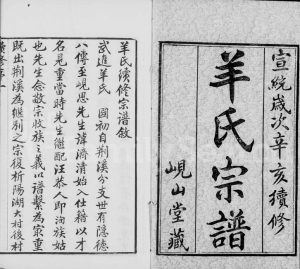 宣統歲次辛亥續修
羊氏宗譜
峴山堂藏
羊氏續修宗譜敘
武進羊氏　國初自荆溪分支世有隱德
八傳至峴思先生諱濟清始入仕籍以才
名見重當時先生繼配汪恭人即泊族姑
也先生念敬宗收族之義以譜繫為家重
既出荆溪為繼别之宗復析陽湖大村後村